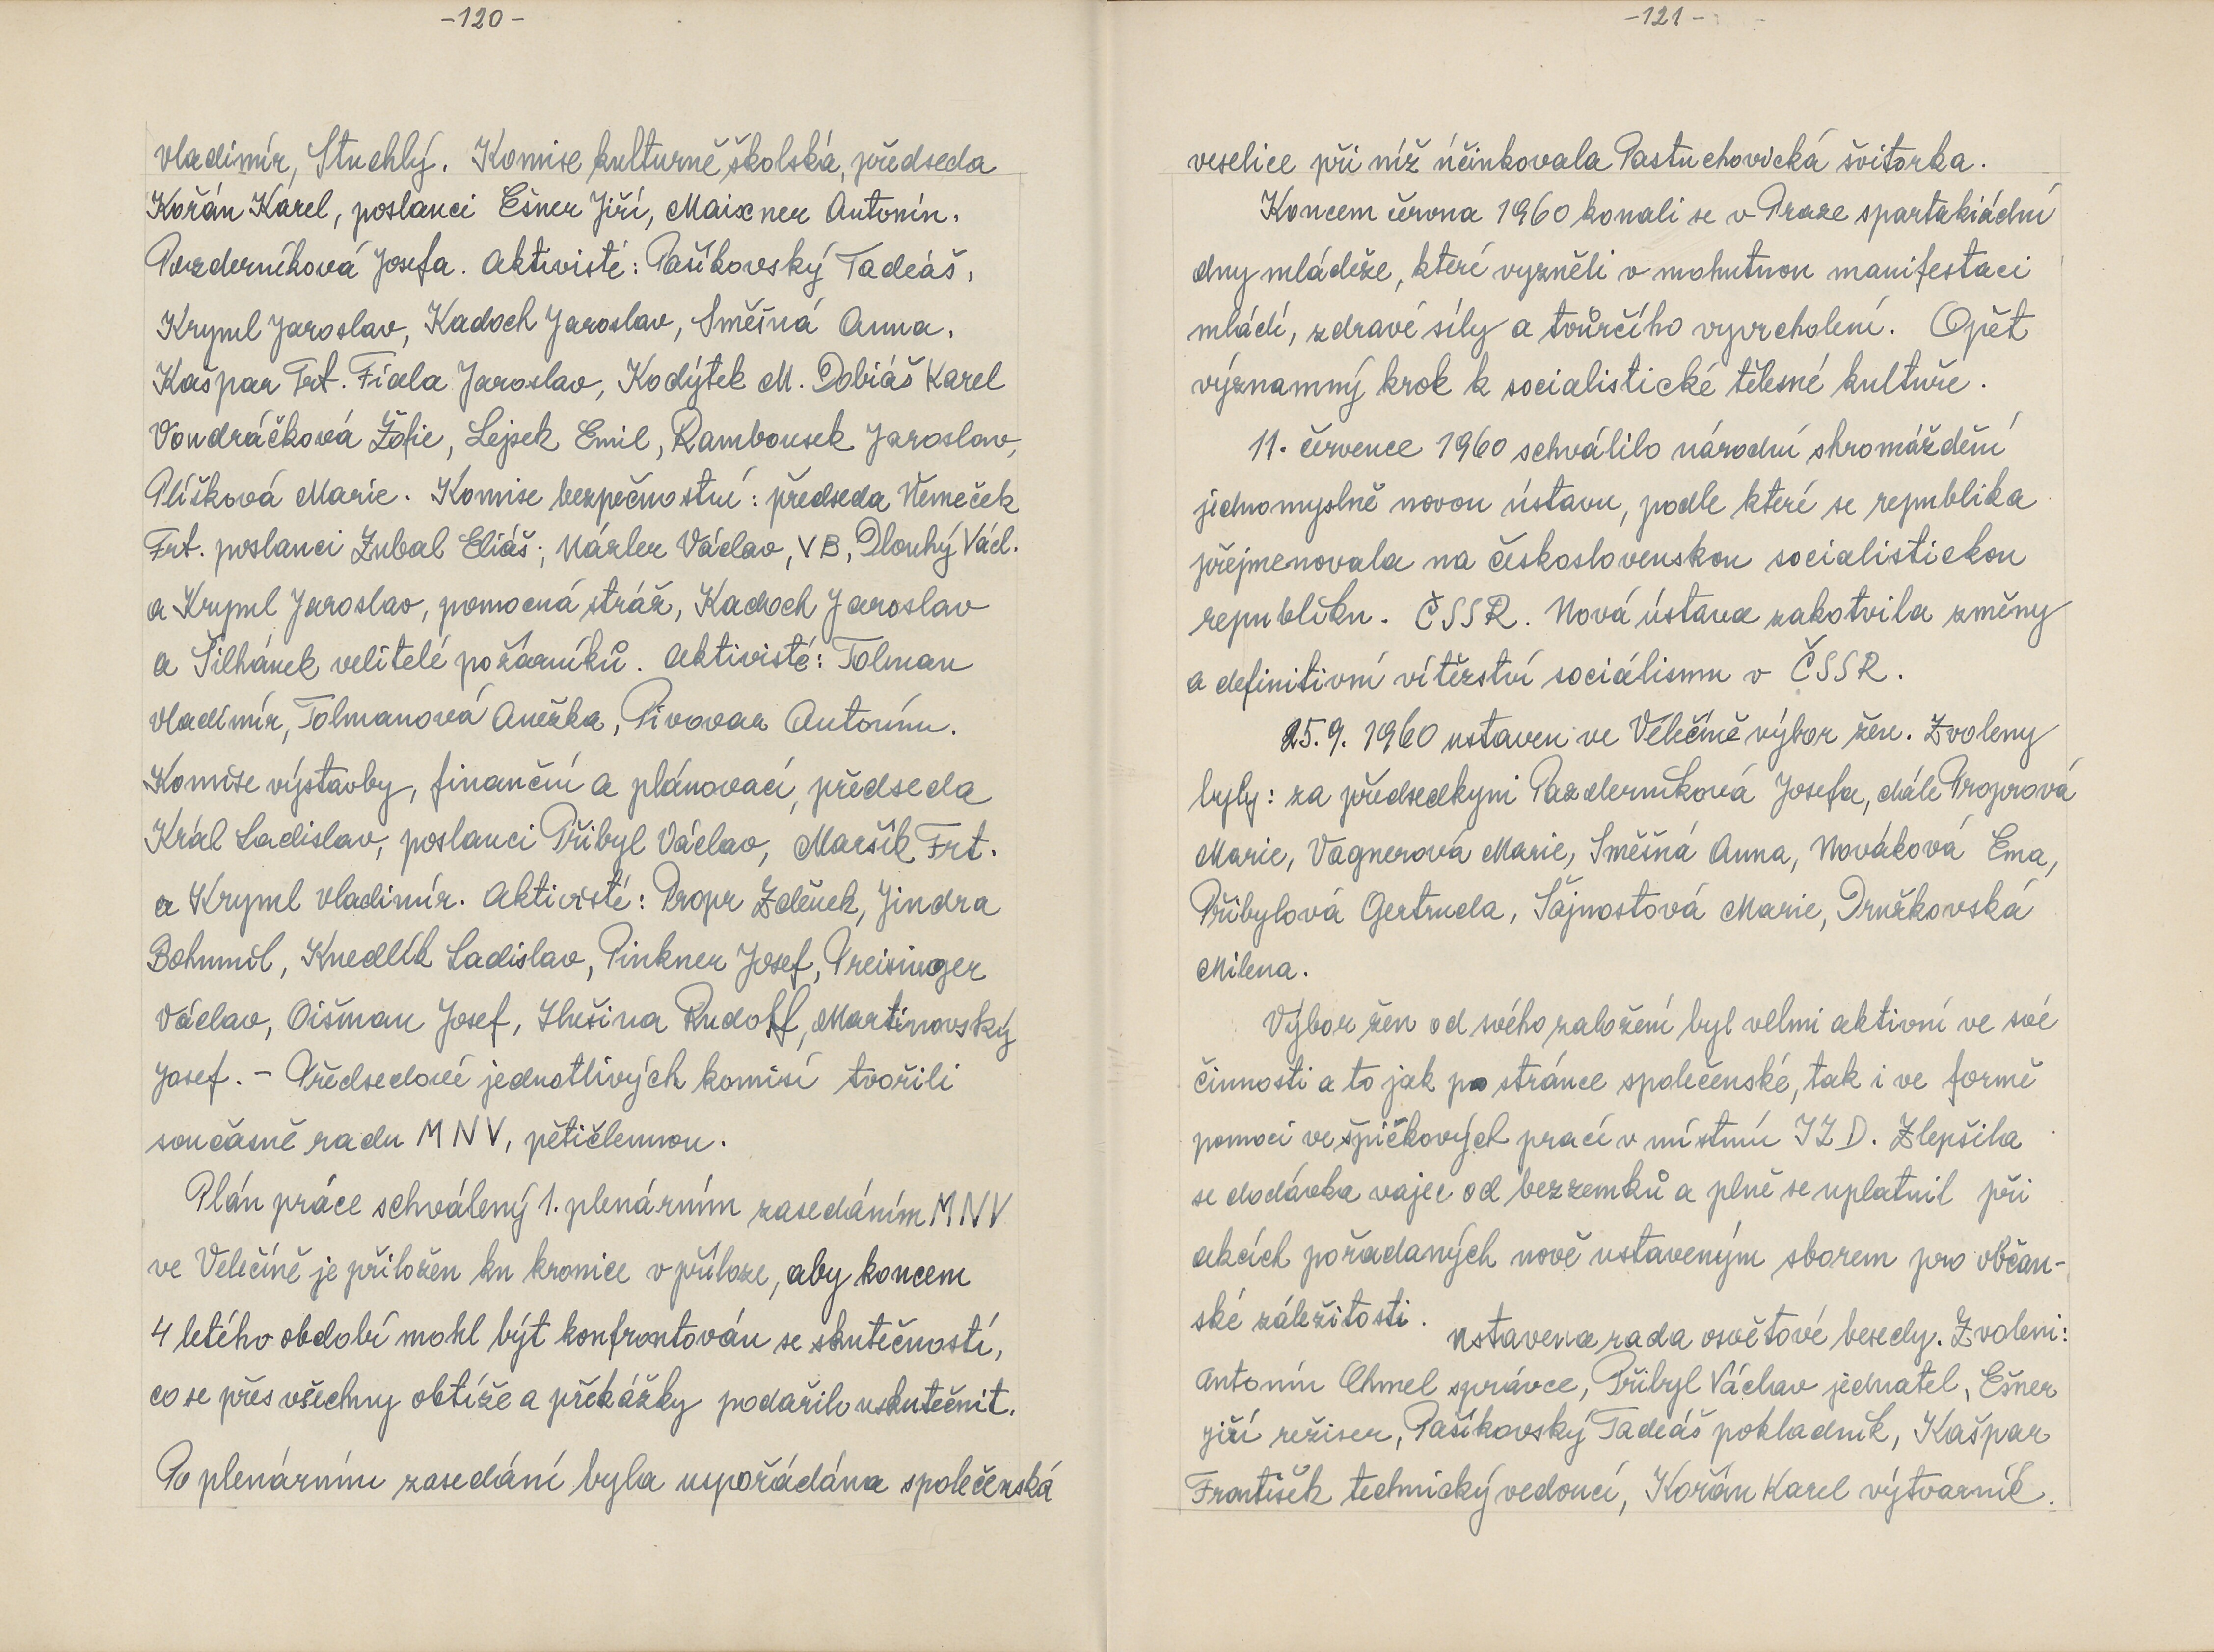 -120-
Vladimír, Stuchlý. Komise kulturně školská, předseda
Kořán Karel, poslanci Ešner Jiří, Maixner Antonín.
Pazderníková Josefa. Aktivisté: Pašíkovský Tadeáš,
Kryml Jaroslav, Kadoch Jaroslav, Směšná Anna.
Kašpar Frt. Fiala Jaroslav, Kodýtek M. Dobiáš Karel
Vondráčková Žofie, Lejsek Emil, Rambousek Jaroslav,
Plíšková Marie. Komise bezpečnostní: předseda Němeček
Frt. poslanci Zubal Eliáš; Názler Václav, VB, Dlouhý Václ.
a Kryml Jaroslav, pomocná stráž, Kadoch Jaroslav
a Šilhánek velitelé požárníků. Aktivisté: Tolman
Vladimír, Tolmanová Anežka, Pivovar Antonín.
Komise výstavby, finanční a plánovací, předseda
Král Ladislav, poslanci Přibyl Václav, Maršík Frt.
a Kryml Vladimír. Aktivisté: Propr Zděnek, Jindra
Bohumil, Knedlík Ladislav, Pinkner Josef, Preisinger
Václav, Oišman Josef, Hušina Rudolf, Martinovský
Josef. - Předsedové jednotlivých komisí tvořili
současně radu MNV, pětičlennou.
Plán práce schválený 1. plenárním zasedáním MNV
ve Velečíně je přiložen ku kronice v příloze, aby koncem
4 letého období mohl být konfrontován se skutečností,
co se přes všechny obtíže a překážky podařilo uskutečnit.
Po plenárním zasedání byla uspořádána společenská
-121-
veselice při níž účinkovala Pastuchovická švitorka.
Koncem června 1960 konali se v Praze spartakiádní
dny mládeže, které vyzněli v mohutnou manifestaci
mládí, zdravé síly a tvůrčího vyvrcholení. Opět
významný krok k socialistické tělesné kultuře.
11. července 1960 schválilo národní shromáždění
jednomyslně novou ústavu, podle které se republika
přejmenovala na československou socialistickou
republiku. ČSSR. Nová ústava zakotvila změny
a definitivní vítězství sociálismu v ČSSR.
25. 9. 1960 ustaven ve Velečíně výbor žen. Zvoleny
byly: za předsedkyni Pazderníková Josefa, dále Proprová
Marie, Vágnerová Marie, Směšná Anna, Nováková Ema,
Přibylová Gertruda, Šajnostová Marie, Družkovská
Milena.
Výbor žen od svého založení byl velmi aktivní ve své
činnosti a to jak po stránce společenské, tak i ve formě
pomoci ve špičkových prací v místním JZD. Zlepšila
se dodávka vajec od bezzemků a plně se uplatnil při
akcích pořadaných nově ustaveným sborem pro občan-
ské záležitosti. Ustavena rada osvětové besedy. Zvoleni:
Antonín Chmel správce, Přibyl Václav jednatel, Ešner
Jiří režiser, Pašíkovský Tadeáš pokladník, Kašpar
František technický vedoucí, Kořán Karel výtvarník.